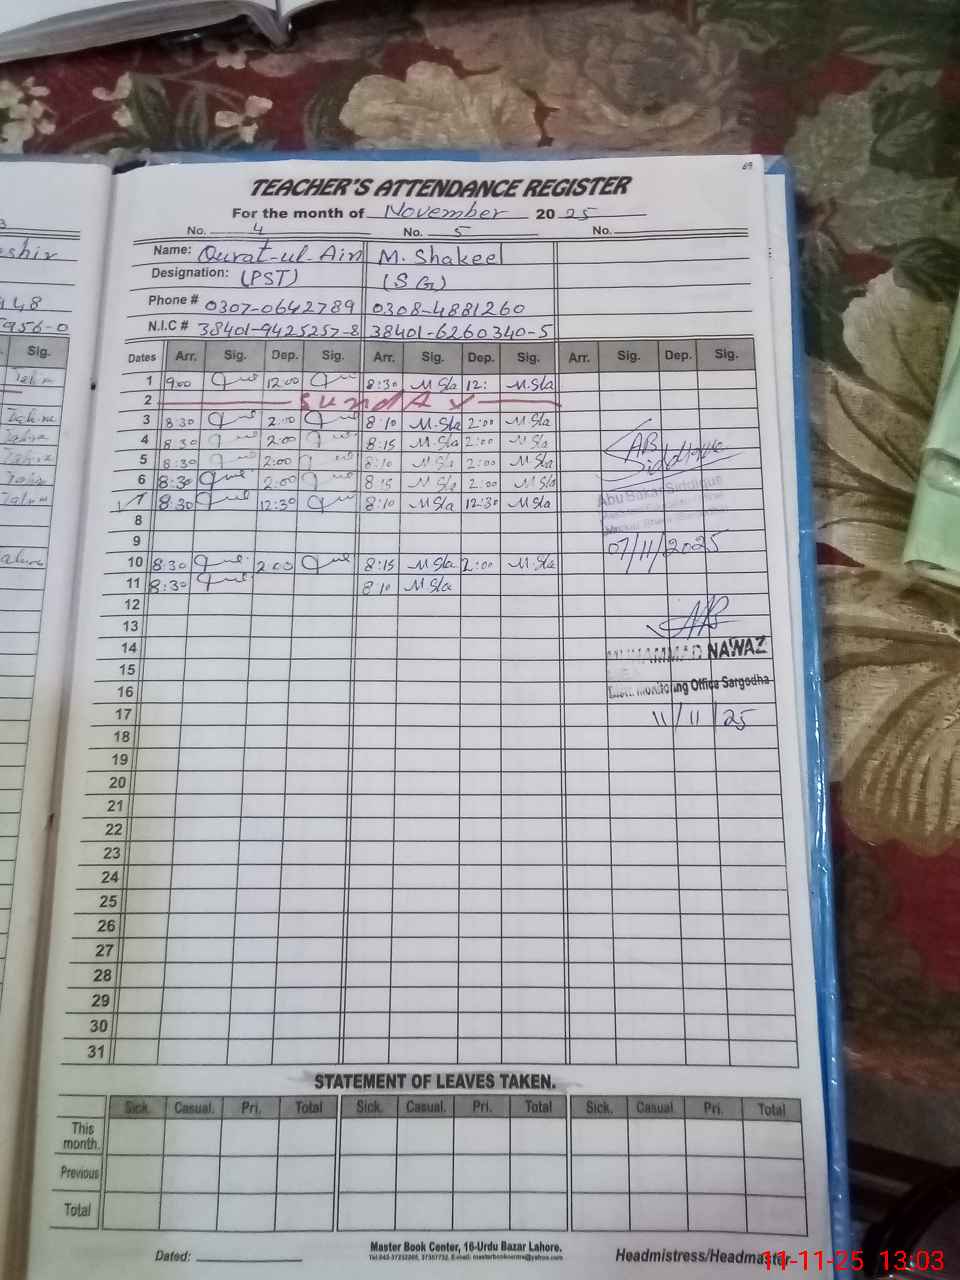 69
TEACHER'S ATTENDANCE REGISTER
For the month of November 2025
No. 4 No. 5 No.
Name: Qurat-ul-Ain M. Shakeel
Designation: (PST) (SG)
Phone # 0307-0642789 0308-4881260
N.I.C # 38401-9425257-8 38401-6260340-5
Dates Arr. Sig. Dep. Sig. Arr. Sig. Dep. Sig. Arr. Sig. Dep. Sig.
1 9:00 12:00 8:30 M Sla 12: M.Sla
2 SUNDAY
3 8:30 2:00 8:10 M.Sla 2:00 M.Sla
4 8:30 2:00 8:15 M Sla 2:00 M Sla
5 8:30 2:00 8:10 M Sla 2:00 M Sla
6 8:30 2:00 8:15 M Sla 2:00 M Sla
7 8:30 12:30 8:10 M Sla 12:30 M Sla
8
9
10 8:30 2:00 8:15 M Sla. 2:00 M Sla
11 8:30 8:10 M Sla
12
13
14
15
16
17
18
19
20
21
22
23
24
25
26
27
28
29
30
31
AB
Siddique
Abu Bakar Siddique
07/11/2025
MUHAMMAD NAWAZ
MEA
Distt. Monitoring Office Sargodha
11/11/25
STATEMENT OF LEAVES TAKEN.
Sick. Casual. Pri. Total Sick. Casual. Pri. Total Sick. Casual Pri. Total
This month.
Previous
Total
Master Book Center, 16-Urdu Bazar Lahore.
Dated: Headmistress/Headmaster
11-11-25 13:03
948
5956-0
Sig.